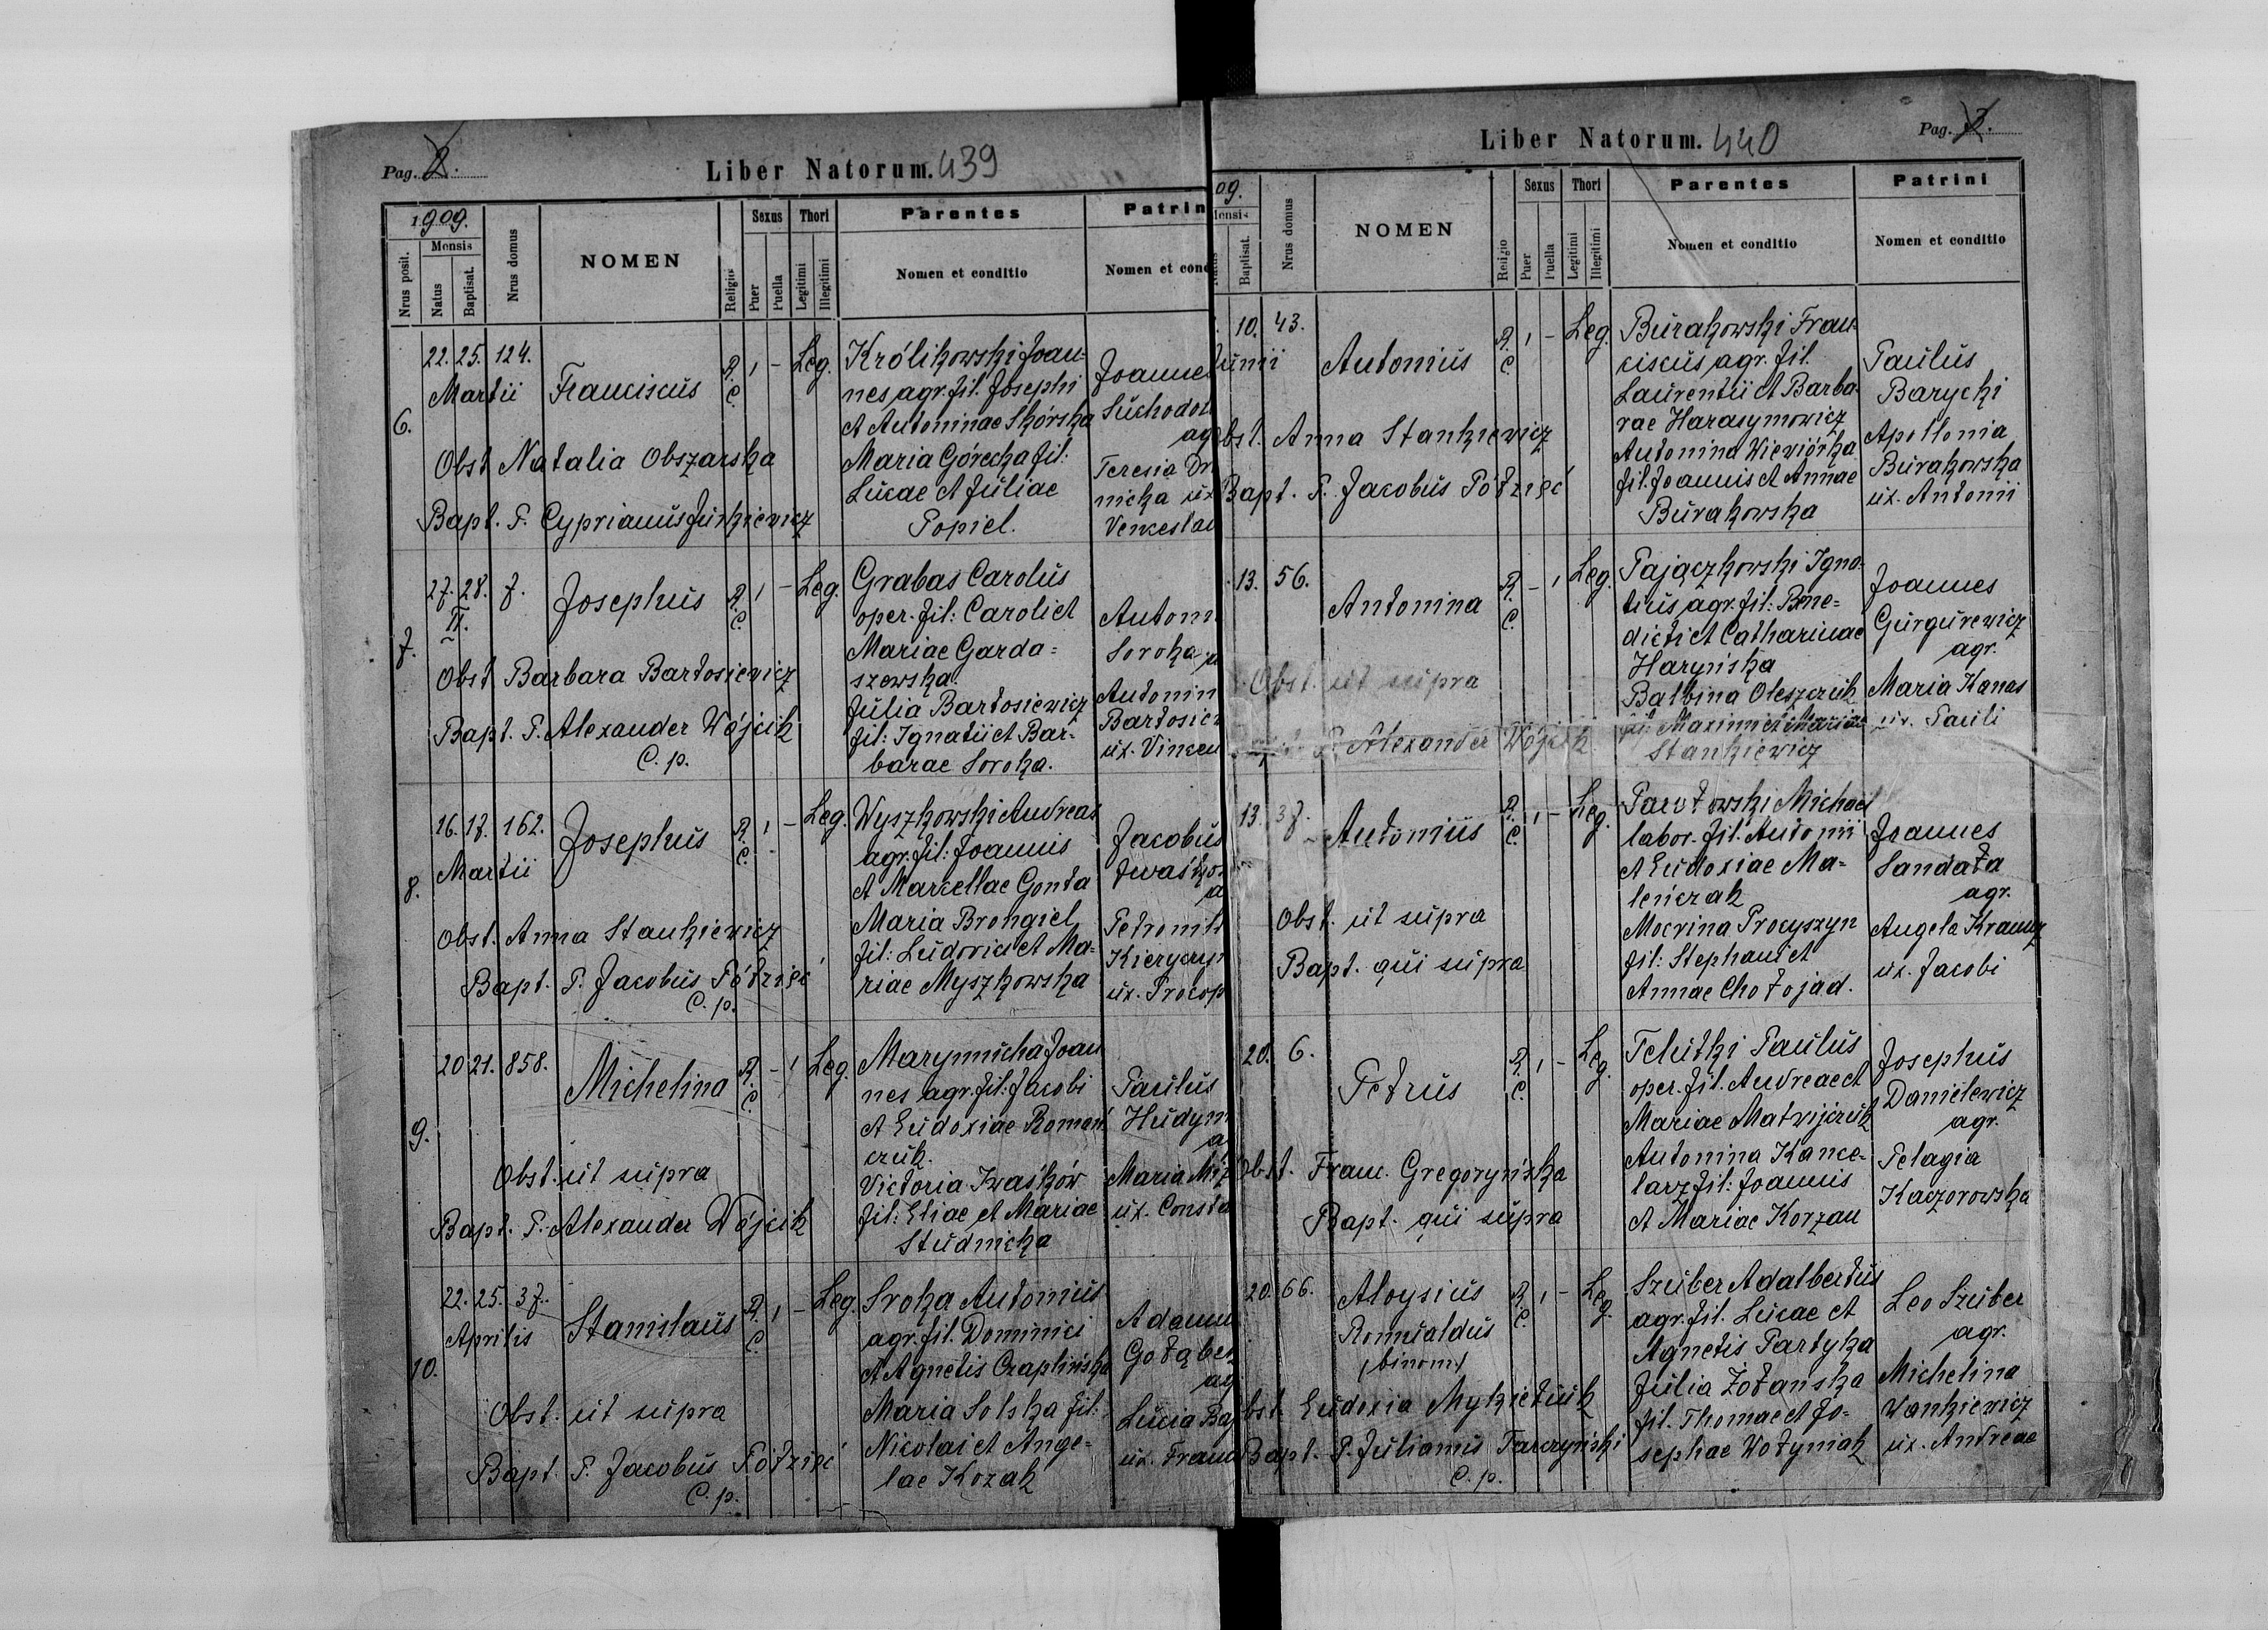 Pag. 2.
Liber Natorum. 439
1909.
Mensis
Nrus posit.
Natus
Baptisat.
Nrus domus
NOMEN
Religio
Sexus
Puer
Puella
Thori
Legitimi
Illegitimi
Parentes
Nomen et conditio
Patrin
Nomen et cond
6.
22. 25. 124.
Martii
Franciscus
R. C.
1 -
Leg.
Obst. Natalia Obszarska
Bapt. P. Cyprianus Jurkiewicz
Królikowski Joan-
nes agr. fil. Josephi
et Antoninae Skórska
Maria Górecka fil:
Lucae et Juliae
Popiel.
Joannes
Suchodol
ag
Teresia Dr
nicka ux
Venceslai
7.
27. 28. 7.
Josephus
R. C.
1 -
Leg.
Obst. Barbara Bartosiewicz
Bapt. P. Alexander Wójcik
C. p.
Grabas Carolus
oper. fil: Caroli et
Mariae Garda-
szewska.
Julia Bartosiewicz
fil: Ignatii et Bar-
barae Soroka.
Antoni
Soroka
Antonin
Bartosiew
ux. Vincen
8.
16. 17. 162.
Martii
Josephus
R. C.
1 -
Leg.
Obst. Anna Stankiewicz
Bapt. P. Jacobus Półzięć
C. p.
Wyszkowski Andreas
agr. fil: Joannis
et Marcellae Gonta
Maria Brongiel
fil: Ludovici et Ma-
riae Myszkowska
Jacobus
Iwaśkow
a
Petronil
Kieryczyn
ux. Procop
9.
20 21. 858.
Michelina
R. C.
- 1
Leg.
Obst. ut supra
Bapt. P. Alexander Wójcik
Marynnicha Joan
nes agr. fil: Jacobi
et Eudoxiae Romań
czuk.
Victoria Iwaśków
fil: Eliae et Mariae
Studnicka
Paulus
Hudym
a
Maria
ux. Consta
10.
22. 25. 37.
Aprilis
Stanislaus
R. C.
1 -
Leg.
Obst. ut supra
Bapt. P. Jacobus Półzięć
C. p.
Sroka Antonius
agr. fil. Dominici
et Agnetis Czaplińska
Maria Solska fil:
Nicolai et Ange-
lae Kozak
Adamu
Gołąbek
ag
Lucia Baj
ux. Franc
Liber Natorum. 440
Pag. 3.
09.
Mensis
Natus
Baptisat.
Nrus domus
NOMEN
Religio
Sexus
Puer
Puella
Thori
Legitimi
Illegitimi
Parentes
Nomen et conditio
Patrini
Nomen et conditio
10. 43.
Junii
Antonius
R. C.
1 -
Leg.
Obst. Anna Stankiewicz
Bapt. P. Jacobus Półzięć
Burakowski Fran-
ciscus agr. fil.
Laurentii et Barba-
rae Harasymowicz
Antonina Wiewiórka
fil. Joannis et Annae
Burakowska
Paulus
Barycki
Apollonia
Burakowska
ux. Antonii
13. 56.
Antonina
R. C.
- 1
Leg.
Obst. ut supra
P. Alexander Wójcik
Pajączkowski Igna-
tius agr. fil: Bene-
dicti et Catharinae
Haryńska
Balbina Oleszczuk
fil. Maximi et Mariae
Stankiewicz
Joannes
Gurgurewicz
agr.
Maria Kanas
ux. Pauli
13. 37.
Antonius
R. C.
1 -
Leg.
Obst. ut supra
Bapt. qui supra
Pawłowski Michael
labor. fil. Antonii
et Eudoxiae Ma-
leńczak
Mocrina Procyszyn
fil: Stephani et
Annae Chołojad.
Joannes
Sandała
agr.
Angela Krawcz
ux. Jacobi
20. 6.
Petrus
R. C.
1 -
Leg.
Obst. Franc. Gregoryńska
Bapt. qui supra
Telutki Paulus
oper. fil. Andreae et
Mariae Matwijczuk
Antonina Kance-
larz fil: Joannis
et Mariae Korzan
Josephus
Danielewicz
agr.
Pelagia
Kaczorowska
20. 66.
Aloysius
Romualdus
(binom.)
R. C.
1 -
Leg.
Obst. Eudoxia Mykietiuk
Bapt. P. Julianus Tarczyński
C. p.
Szuber Adalbertus
agr. fil. Lucae et
Agnetis Partyka
Julia Żołańska
fil. Thomae et Jo-
sephae Wołyniak
Leo Szuber
agr.
Michelina
Wankiewicz
ux. Andreae